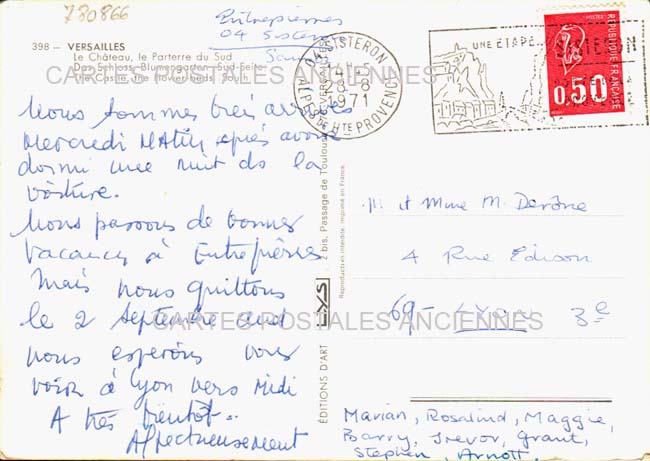 780866
Entrepierres
04 Sisteron
398 — VERSAILLES
Le Château, le Parterre du Sud
Das Schloss, Blumengarten, Süd-Seite
The Castle, the flower-beds South
CARTES POSTALES ANCIENNES
Nous sommes bien arrivés
Mercredi Matin après avoir
dormi une nuit ds la
voiture.
Nous passons de bonnes
vacances à Entrepierres
Mais nous quittons
le 2 Septembre and
nous espérons vous
voir à Lyon vers Midi
A très bientôt..
Affectueusement
04 SISTERON
1971
ALPES DE HTE PROVENCE
UNE ÉTAPE
SISTERON
POSTES
RÉPUBLIQUE FRANÇAISE
0,50
2 bis, Passage de Toulouse
Reproduction interdite. Imprimé en France.
LYS
ÉDITIONS D'ART
M. et Mme M. Derône
4 Rue Edison
69- LYON 3e
CARTES POSTALES ANCIENNES
Marian, Rosalind, Maggie,
Barry, Trevor, Grant,
Stephen, Arnott.